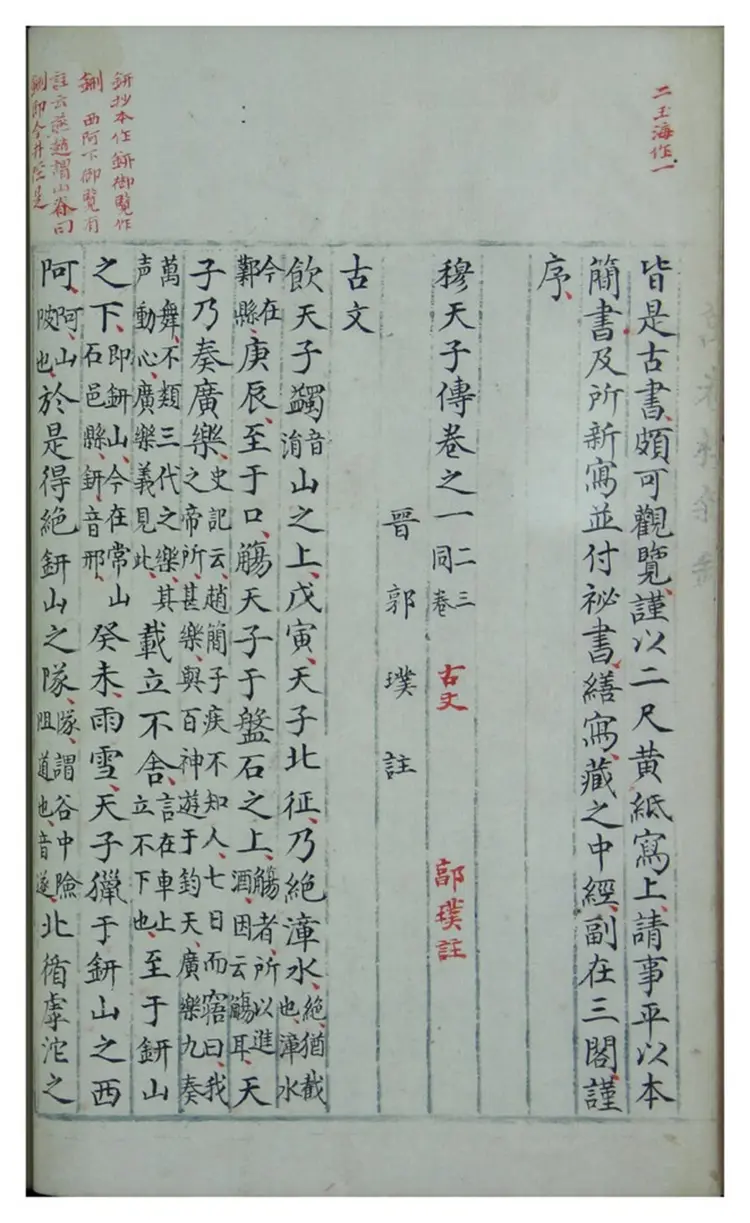 二玉海作一
皆是古書頗可觀覽謹以二尺黄紙寫上請事平以本
簡書及所新寫並付祕書繕寫藏之中經副在三閣謹
序
穆天子傳卷之一二三同卷 古文 郭璞註
晉郭璞註
古文
飲天子蠲音涓山之上戊寅天子北征乃絕漳水絕猶截也漳水
今在鄴縣庚辰至于口觴天子于盤石之上觴者所以進酒因云觴耳天
子乃奏廣樂史記云趙簡子疾不知人七日而寤曰我之帝所甚樂與百神遊于鈞天廣樂九奏
萬舞不類三代之樂其声動心廣樂義見此載立不舍言在車上立不下也至于鈃山
之下即鈃山今在常山石邑縣鈃音邢癸未雨雪天子獵于鈃山之西
阿阿山陂也於是得絕鈃山之隊隊謂谷中險阻道也音遂北循虖沱之
鈃抄本作鈃御覽作
鉶 西阿下御覽有
註云燕趙謂山脊曰
鉶即今井陘是